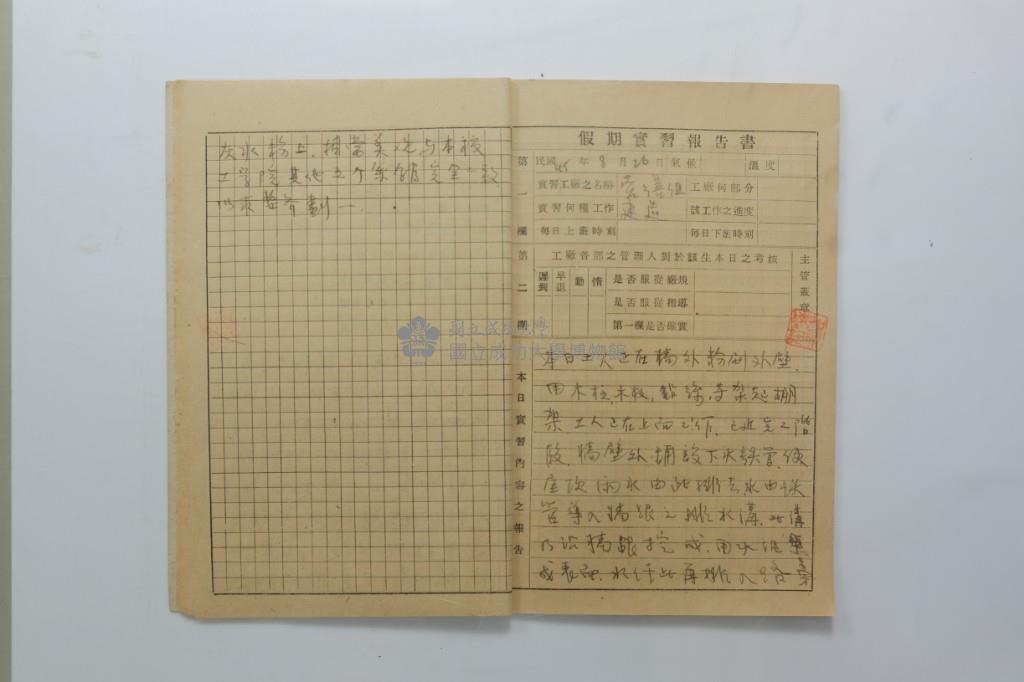 灰水粉上，非常美观与本校
工学院其他五个系馆完全一致
以求整齐劃一．
假期實習報告書
第一欄
民國45年8月26日氣候 溫度
實習工廠之名稱 營繕组 工廠何部分
實習何種工作 建造 該工作之進度
每日上班時刻 每日下班時刻
第二欄
工廠各部之管理人對於該生本日之考核
遲到 早退 勤 惰
是否服從廠規
是否服從指導
第一欄是否確實
主管蓋章
本日實習內容之報告
本日工人已在墙外粉刷外壁，
用木柱，木板，等架起棚
架工人已在上面工作，已近完工階
段，墙壁外埔設下水鉄管，使
屋頂雨水由此排去水由鉄
管導入墙跟之排水溝，此溝
乃沿墙跟挖成，用水泥
成表面，水于此再排入
國立成功大學
國立成功大學博物館